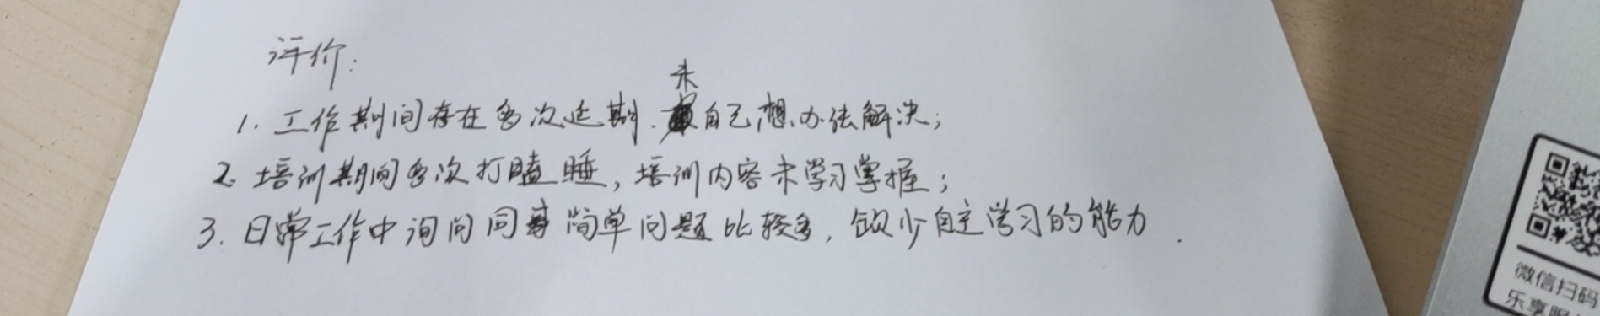 评价:
1. 工作期间存在多次延期.未自己想办法解决;
2. 培训期间多次打瞌睡,培训内容未学习掌握;
3. 日常工作中询问同事简单问题比较多,缺少自主学习的能力.
微信扫码
乐享